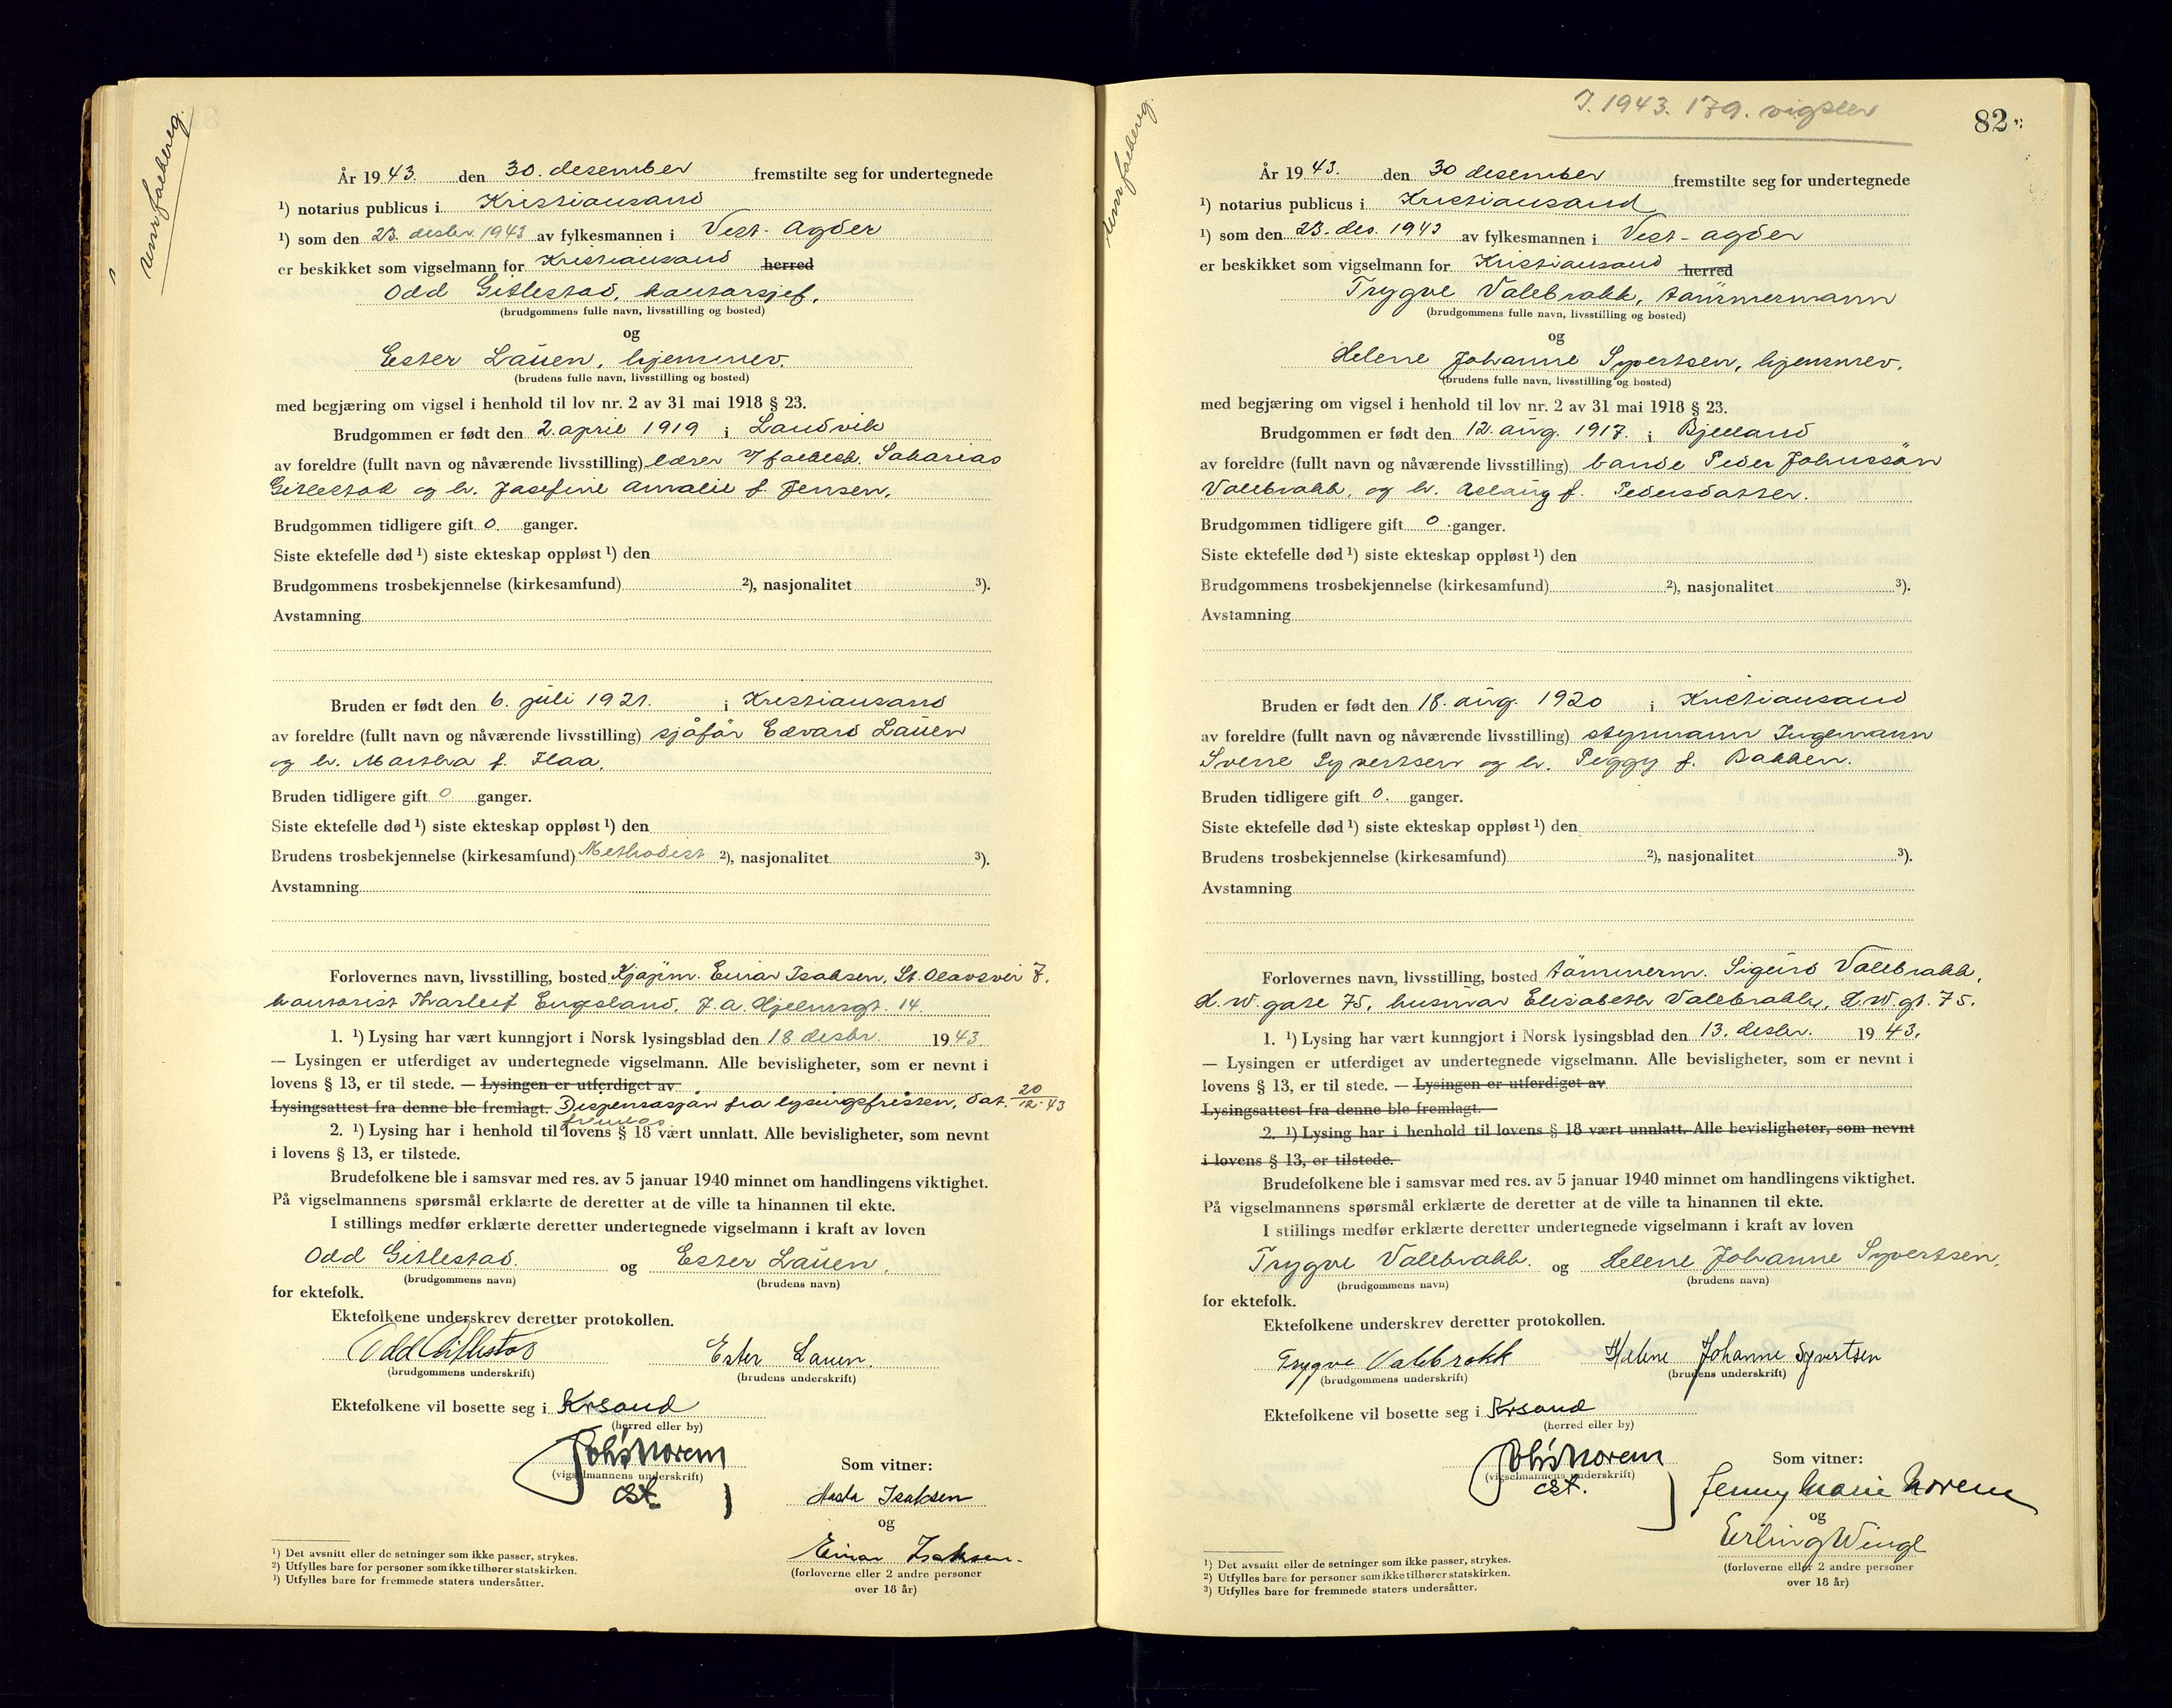 År 1943. den 30. desember fremstilte seg for undertegnede
¹) notarius publicus i Kristiansand
¹) som den 23. desbr. 1943 av fylkesmannen i Vest-Agder
er beskikket som vigselmann for Kristiansand herred
Odd Gitlestad, kontorsjef.
(brudgommens fulle navn, livsstilling og bosted)
og
Ester Lauen, hjemmev.
(brudens fulle navn, livsstilling og bosted)
med begjæring om vigsel i henhold til lov nr. 2 av 31 mai 1918 § 23.
Brudgommen er født den 2. april 1919 i Landvik
av foreldre (fullt navn og nåværende livsstilling) lærer Sakarias
Gitlestad og h. Josefine Amalie f. Jensen.
Brudgommen tidligere gift 0 ganger.
Siste ektefelle død ¹) siste ekteskap oppløst ¹) den
Brudgommens trosbekjennelse (kirkesamfund) ²), nasjonalitet ³).
Avstamning
Bruden er født den 6. juli 1921. i Kristiansand
av foreldre (fullt navn og nåværende livsstilling) sjåfør Edvard Lauen
og h. Martha f. Flaa.
Bruden tidligere gift 0 ganger.
Siste ektefelle død ¹) siste ekteskap oppløst ¹) den
Brudens trosbekjennelse (kirkesamfund) Methodist ²), nasjonalitet ³).
Avstamning
Forlovernes navn, livsstilling, bosted Kjøpm. Einar Isaksen, St. Olavsvei 7.
kontorist Tharleif Engesland, J. A. Hjelmsgt. 14.
1. ¹) Lysing har vært kunngjort i Norsk lysingsblad den 18 desbr. 1943.
— Lysingen er utferdiget av undertegnede vigselmann. Alle bevisligheter, som er nevnt i
lovens § 13, er til stede. — Lysingen er utferdiget av
Lysingsattest fra denne ble fremlagt. Dispensasjon fra lysingsfristen, dat. 20/12-43
2. ¹) Lysing har i henhold til lovens § 18 vært unnlatt. Alle bevisligheter, som nevnt
i lovens § 13, er tilstede.
Brudefolkene ble i samsvar med res. av 5 januar 1940 minnet om handlingens viktighet.
På vigselmannens spørsmål erklærte de deretter at de ville ta hinannen til ekte.
I stillings medfør erklærte deretter undertegnede vigselmann i kraft av loven
Odd Gitlestad. og Ester Lauen.
(brudgommens navn) (brudens navn)
for ektefolk.
Ektefolkene underskrev deretter protokollen.
Odd Gitlestad Ester Lauen.
(brudgommens underskrift) (brudens underskrift)
Ektefolkene vil bosette seg i Krsand
(herred eller by)
Johs Norem
(vigselmannens underskrift)
cst.
Som vitner:
Isaksen
og
Einar Isaksen.
(forloverne eller 2 andre personer
over 18 år)
¹) Det avsnitt eller de setninger som ikke passer, strykes.
²) Utfylles bare for personer som ikke tilhører statskirken.
³) Utfylles bare for fremmede staters undersåtter.
I. 1943. 179. vigsler
82
År 1943. den 30 desember fremstilte seg for undertegnede
¹) notarius publicus i Kristiansand
¹) som den 23. des. 1943 av fylkesmannen i Vest-Agder
er beskikket som vigselmann for Kristiansand herred
Trygve Valebrokk, tømmermann
(brudgommens fulle navn, livsstilling og bosted)
og
Helene Johanne Syvertsen, hjemmev.
(brudens fulle navn, livsstilling og bosted)
med begjæring om vigsel i henhold til lov nr. 2 av 31 mai 1918 § 23.
Brudgommen er født den 12. aug. 1917. i Bjelland
av foreldre (fullt navn og nåværende livsstilling) bonde Peder Johnssøn
Valebrokk, og h. Aslaug f. Pedersdatter.
Brudgommen tidligere gift 0 ganger.
Siste ektefelle død ¹) siste ekteskap oppløst ¹) den
Brudgommens trosbekjennelse (kirkesamfund) ²), nasjonalitet ³).
Avstamning
Bruden er født den 18. aug. 1920 i Kristiansand
av foreldre (fullt navn og nåværende livsstilling) styrmann Ingemann
Sverre Syvertsen og h. Peggy f. Bakken.
Bruden tidligere gift 0. ganger.
Siste ektefelle død ¹) siste ekteskap oppløst ¹) den
Brudens trosbekjennelse (kirkesamfund) ²), nasjonalitet ³).
Avstamning
Forlovernes navn, livsstilling, bosted tømmerm. Sigurd Valebrokk,
H. W. gate 75, husmor Elisabeth Valebrokk, H. W. gt. 75.
1. ¹) Lysing har vært kunngjort i Norsk lysingsblad den 13. desbr. 1943.
— Lysingen er utferdiget av undertegnede vigselmann. Alle bevisligheter, som er nevnt i
lovens § 13, er til stede. — Lysingen er utferdiget av
Lysingsattest fra denne ble fremlagt. —
2. ¹) Lysing har i henhold til lovens § 18 vært unnlatt. Alle bevisligheter, som nevnt
i lovens § 13, er tilstede.
Brudefolkene ble i samsvar med res. av 5 januar 1940 minnet om handlingens viktighet.
På vigselmannens spørsmål erklærte de deretter at de ville ta hinannen til ekte.
I stillings medfør erklærte deretter undertegnede vigselmann i kraft av loven
Trygve Valebrokk. og Helene Johanne Syvertsen.
(brudgommens navn) (brudens navn)
for ektefolk.
Ektefolkene underskrev deretter protokollen.
Trygve Valebrokk Helene Johanne Syvertsen
(brudgommens underskrift) (brudens underskrift)
Ektefolkene vil bosette seg i Krsand
(herred eller by)
Johs Norem
(vigselmannens underskrift)
cst.
Som vitner:
Jenny Marie Norem
og
Erling Wingl
(forloverne eller 2 andre personer
over 18 år)
¹) Det avsnitt eller de setninger som ikke passer, strykes.
²) Utfylles bare for personer som ikke tilhører statskirken.
³) Utfylles bare for fremmede staters undersåtter.